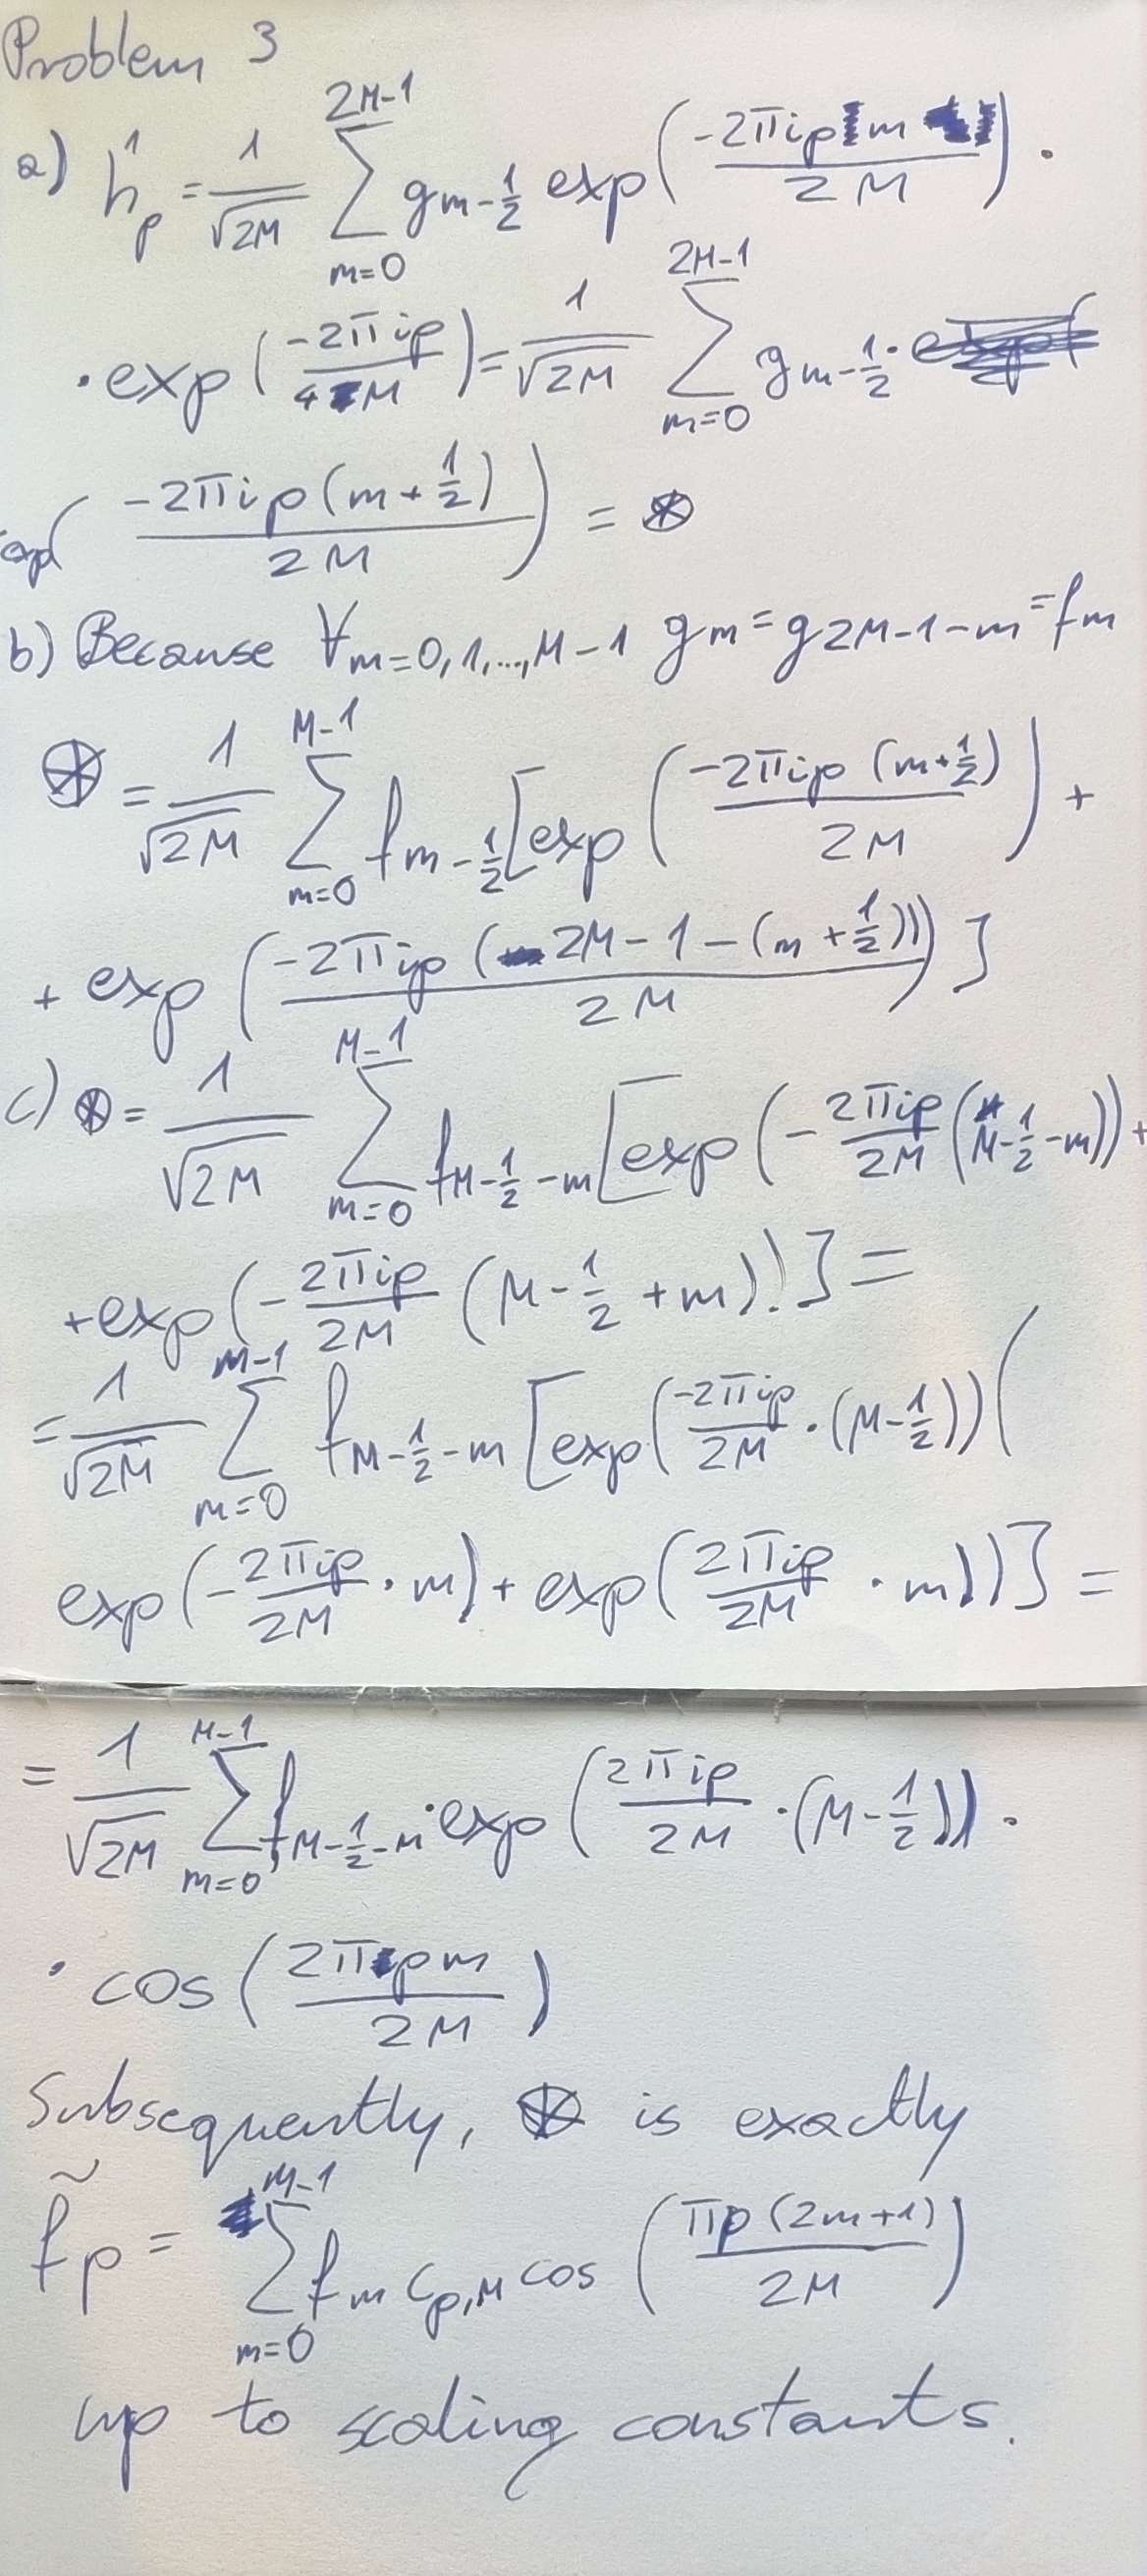 Problem 3
a) ĥ_p = 1/√2M ∑_{m=0}^{2M-1} g_{m-1/2} exp(-2πip m / 2M) ·
· exp(-2πip / 4M) = 1/√2M ∑_{m=0}^{2M-1} g_{m-1/2} ·
exp(-2πip(m+1/2) / 2M) = ⊛
b) Because ∀_{m=0,1,...,M-1} g_m = g_{2M-1-m} = f_m
⊛ = 1/√2M ∑_{m=0}^{M-1} f_{m-1/2} [exp(-2πip(m+1/2) / 2M) +
+ exp(-2πip(2M-1-(m+1/2)) / 2M)]
c) ⊛ = 1/√2M ∑_{m=0}^{M-1} f_{M-1/2-m} [exp(- 2πip/2M (M-1/2-m)) +
+ exp(- 2πip/2M (M-1/2+m))] =
= 1/√2M ∑_{m=0}^{M-1} f_{M-1/2-m} [exp(-2πip/2M · (M-1/2)) (
exp(- 2πip/2M · m) + exp(2πip/2M · m))] =
= 1/√2M ∑_{m=0}^{M-1} f_{M-1/2-m} · exp(2πip/2M · (M-1/2)) ·
· cos(2πpm / 2M)
Subsequently, ⊛ is exactly
f̃_p = ∑_{m=0}^{M-1} f_m c_{p,M} cos(πp(2m+1) / 2M)
up to scaling constants.